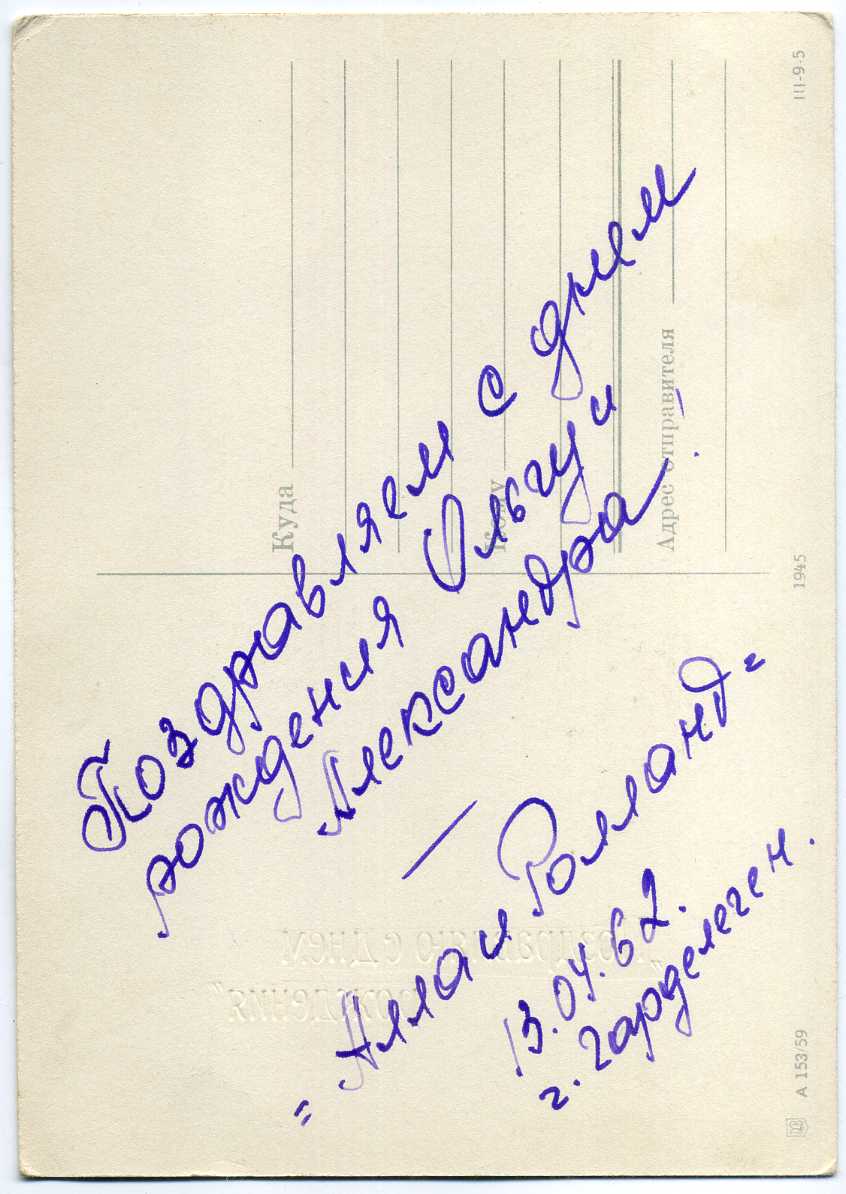 Поздравляем с днем
рождения Ольгу и
Александра!
—
"Алла и Ролланд"
13.04.62.
г. Гарделеген.
Куда
Кому
Адрес отправителя
III-9-5
1945
A 153/59
"Поздравляю с днем
рождения"